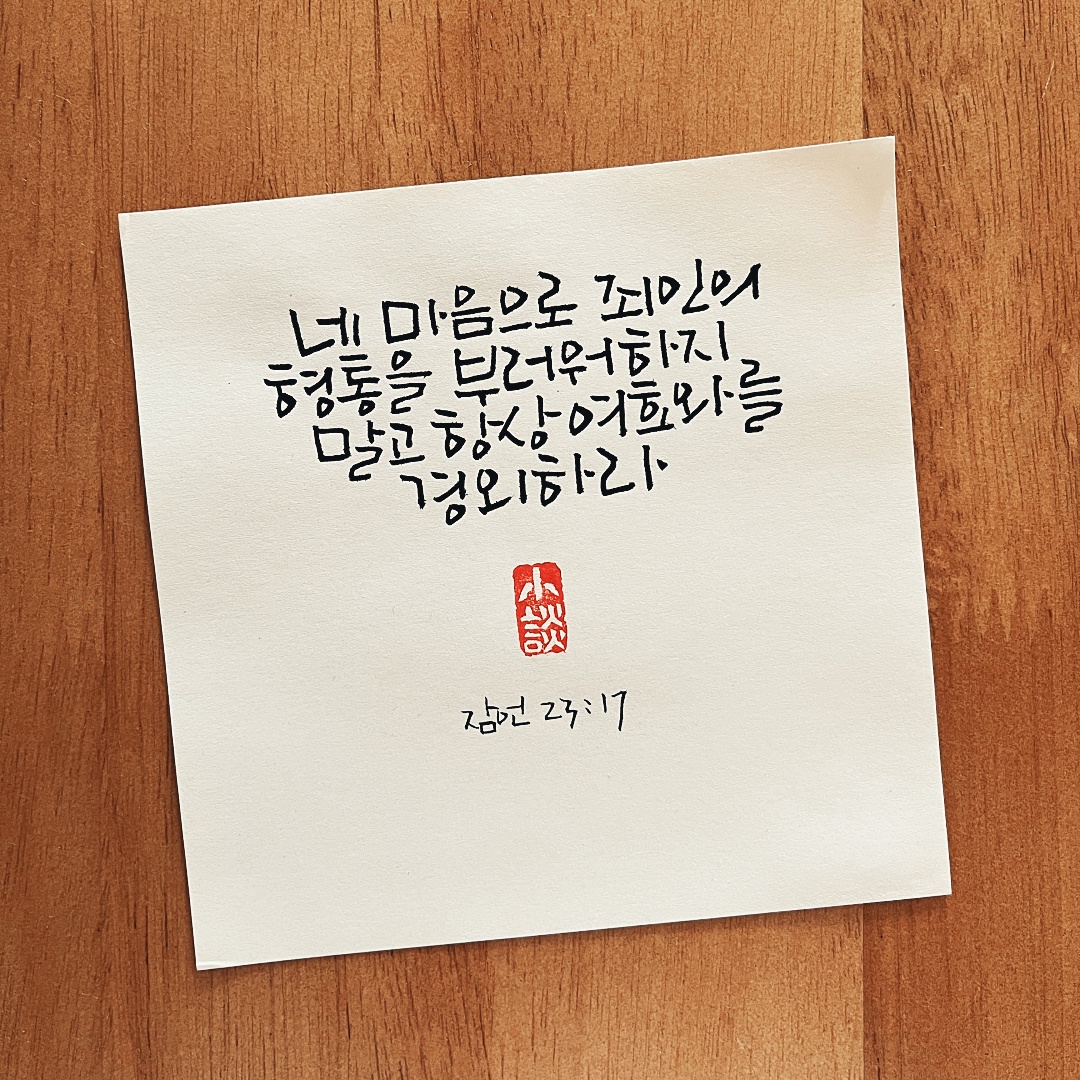 네 마음으로 죄인의
형통을 부러워하지
말고 항상 여호와를
경외하라
小
談
잠언 23:17